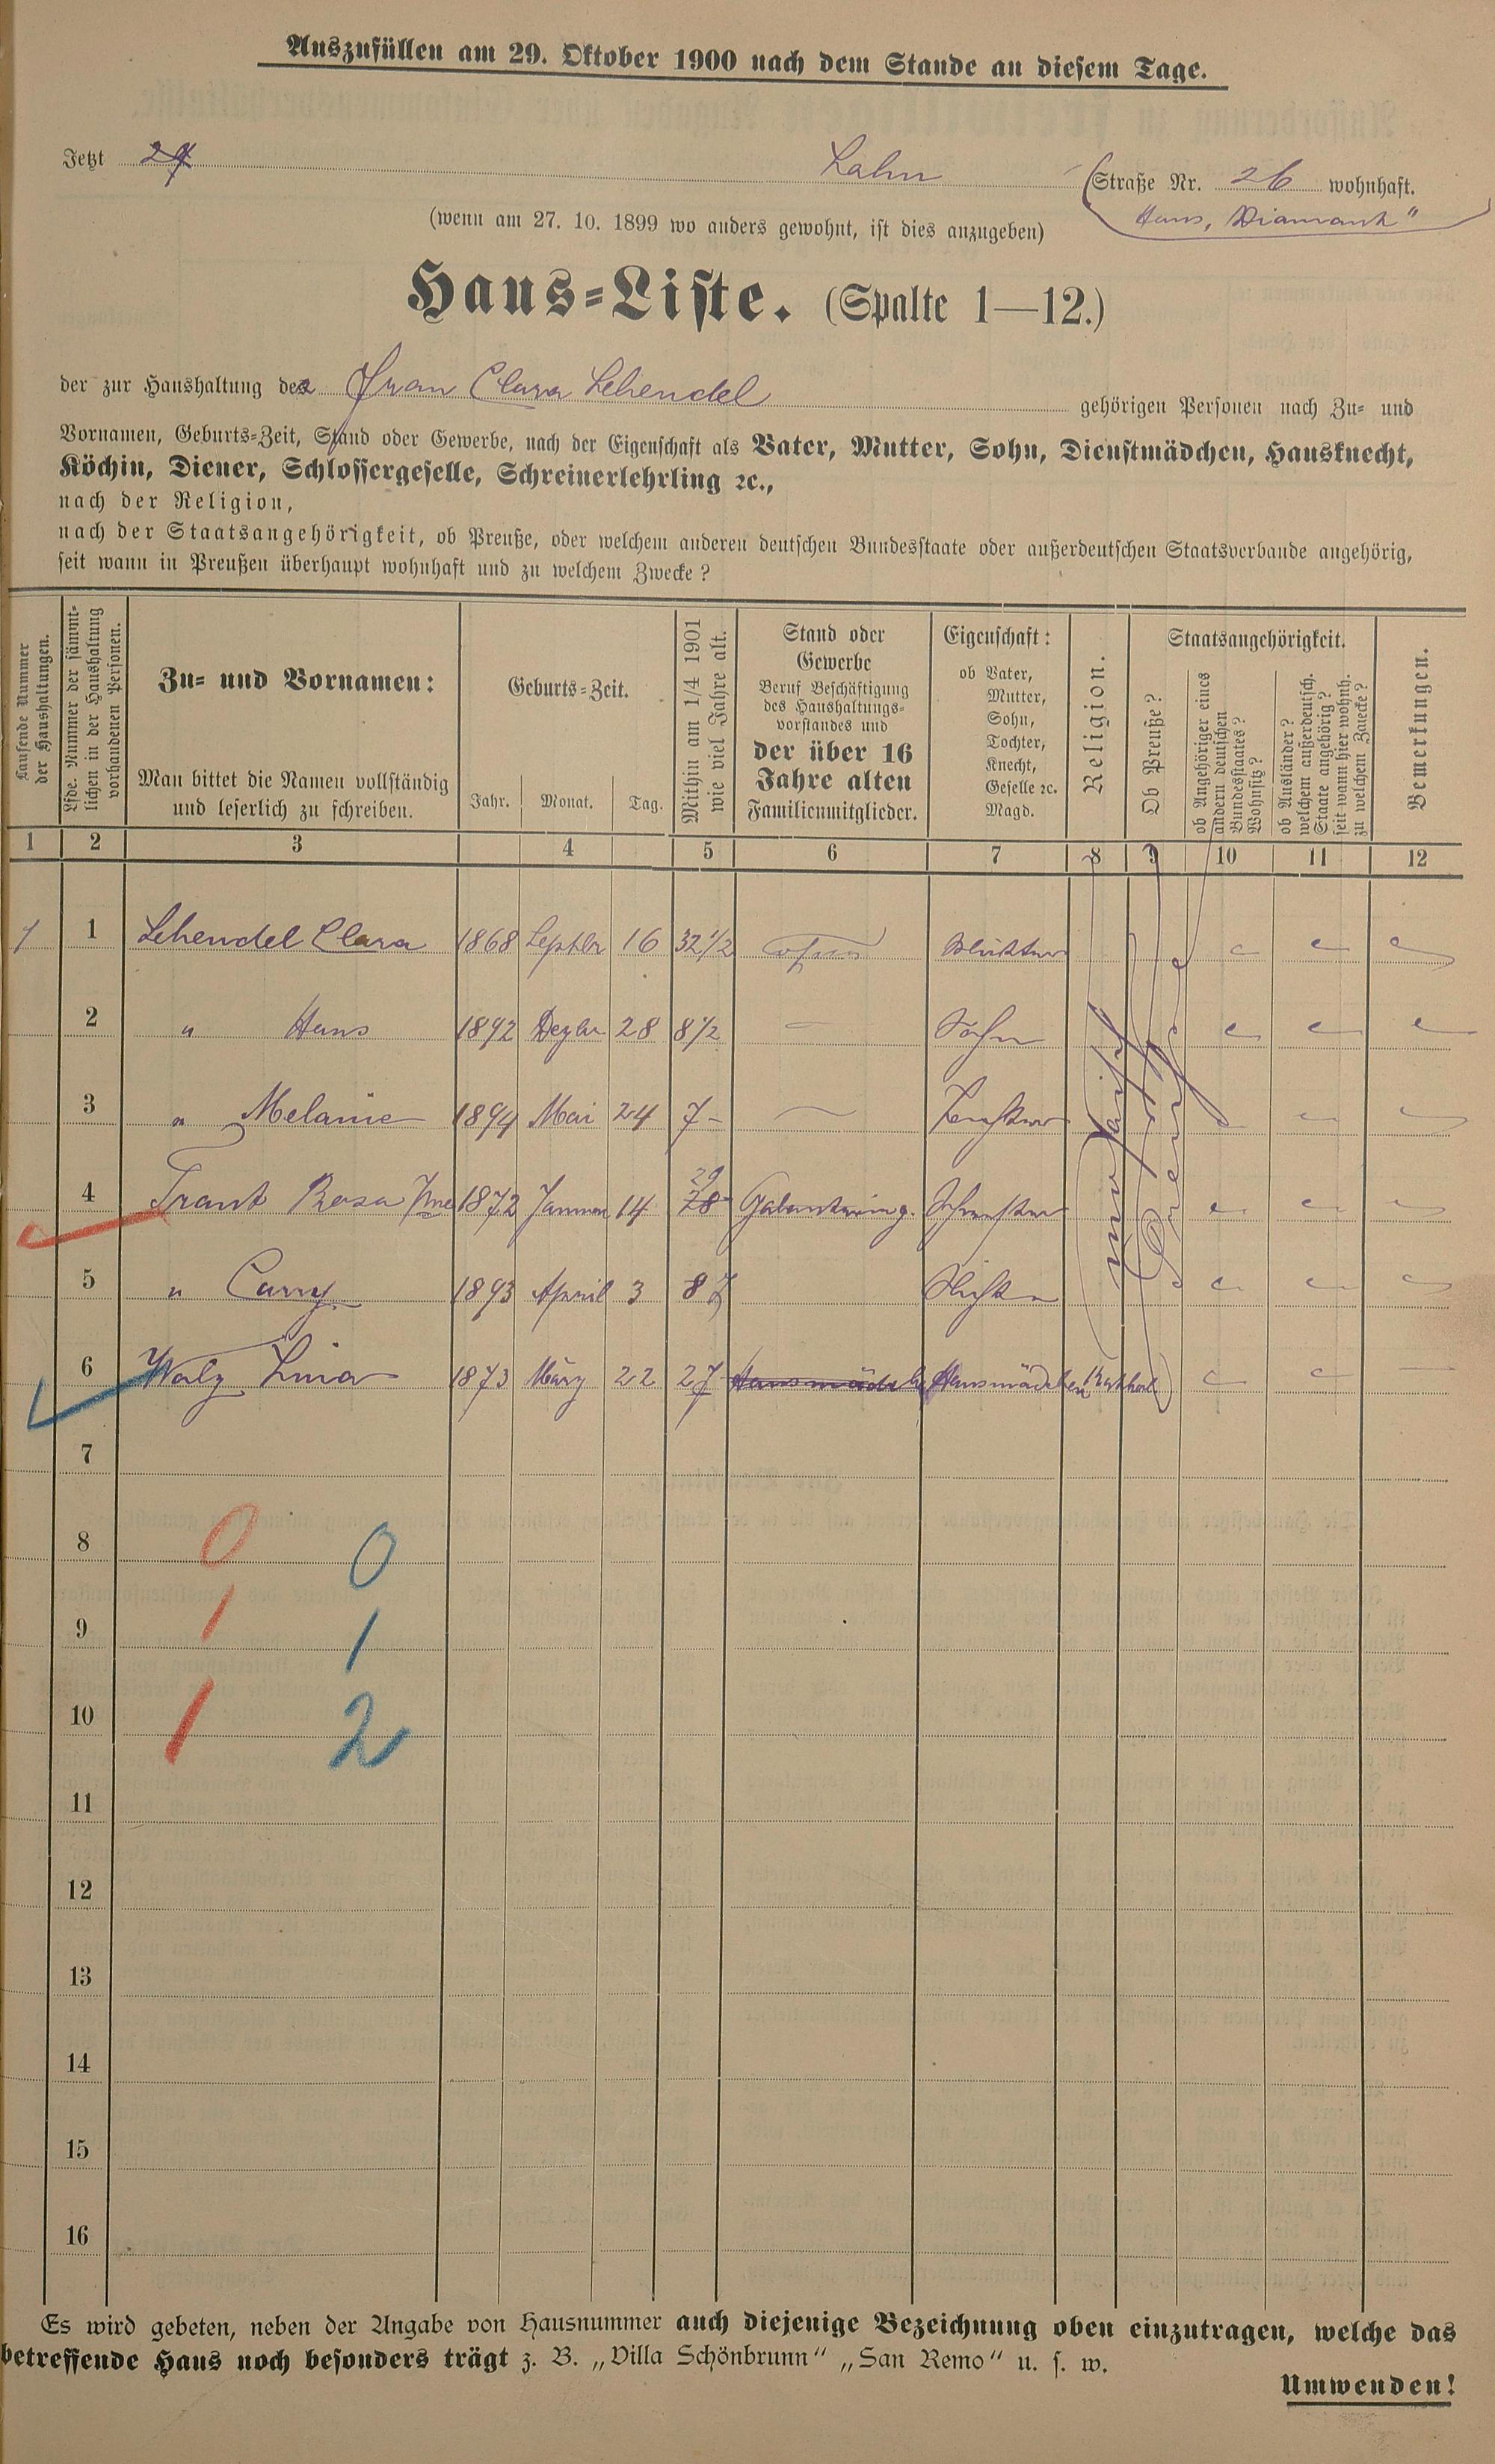 Auszufüllen am 29. Oktober 1900 nach dem Stande an diesem Tage.
Jetzt Lahn (Straße Nr. 26 wohnhaft.
(wenn am 27. 10. 1899 wo anders gewohnt, ist dies anzugeben) Haus „Diamant"
Haus=Liste. (Spalte 1—12.)
der zur Haushaltung der Frau Clara Lehendel gehörigen Personen nach Zu= und
Vornamen, Geburts=Zeit, Stand oder Gewerbe, nach der Eigenschaft als Vater, Mutter, Sohn, Dienstmädchen, Hausknecht,
Köchin, Diener, Schlossergeselle, Schreinerlehrling ꝛc.,
nach der Religion,
nach der Staatsangehörigkeit, ob Preuße, oder welchem anderen deutschen Bundesstaate oder außerdeutschen Staatsverbande angehörig,
seit wann in Preußen überhaupt wohnhaft und zu welchem Zwecke?
Laufende Nummer
der Haushaltungen.
Lfde. Nummer der sämmt=
lichen in der Haushaltung
vorhandenen Personen.
Zu= und Vornamen:
Man bittet die Namen vollständig
und leserlich zu schreiben.
Geburts=Zeit.
Jahr. Monat. Tag.
Mithin am 1/4 1901
wie viel Jahre alt.
Stand oder
Gewerbe
Beruf Beschäftigung
des Haushaltungs=
vorstandes und
der über 16
Jahre alten
Familienmitglieder.
Eigenschaft:
ob Vater,
Mutter,
Sohn,
Tochter,
Knecht,
Geselle ꝛc.
Magd.
Religion.
Staatsangehörigkeit.
Ob Preuße?
ob Angehöriger eines
andern deutschen
Bundesstaates?
Wohnsitz?
ob Ausländer?
welchem außerdeutsch.
Staate angehörig?
seit wann hier wohnh.
zu welchem Zwecke?
Bemerkungen.
1 2 3 4 5 6 7 8 9 10 11 12
1 1 Lehendel Clara 1868 Septbr 16 32 1/2 ohne
2 " Hans 1892 Dezbr 28 8 1/2 — Sohn
3 " Melanie 1894 Mai 24 7 — — Tochter
4 Rosa 1872 Januar 14 29 Schwester
5 " 1893 April 3 8 Nichte
6 Walz Lina 1873 März 22 27 Hausmädchen Hausmädchen Kathol
7
8 0 0
9 1 1
10 1 2
11
12
13
14
15
16
Es wird gebeten, neben der Angabe von Hausnummer auch diejenige Bezeichnung oben einzutragen, welche das
betreffende Haus noch besonders trägt z. B. „Villa Schönbrunn" „San Remo" u. s. w.
Umwenden!